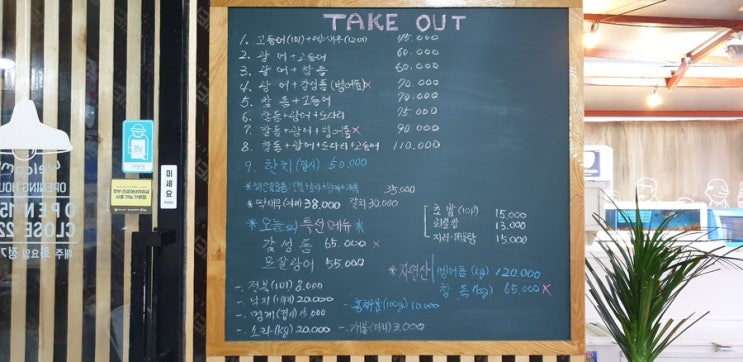 TAKE OUT
1. 고등어(1미)+ 새우(12미) 45.000
2. 광어+고등어 60.000
3. 광어+참돔 60.000
4. 광어+감성돔 (벵어돔)x 70.000
5. 참돔+고등어 70.000
6. 참돔+광어+도다리 75.000
7. 참돔+광어+벵어돔x 90.000
8. 참돔+광어+도다리+고등어 110.000
9. 한치(접시) 50.000
35.000
38.000 30.000
*오늘의 특선메뉴*
감성돔 65.000 x
광어 55.000
초밥(10P) 15.000
회덮밥 13.000
지리·매운탕 15.000
*자연산 벵어돔(kg) 120.000
참돔(kg) 65.000 x
-. 전복(1미) 8.000
-. 낙지(1마리) 20.000
-. 멍게 000
-. 소라(kg) 20.000
-. (100g) 10.000
-. 개불(마리) 3.000
welcome
OPENING HOU
OPEN 15
CLOSE 22
매주 화요일 정기
미세요
PUSH